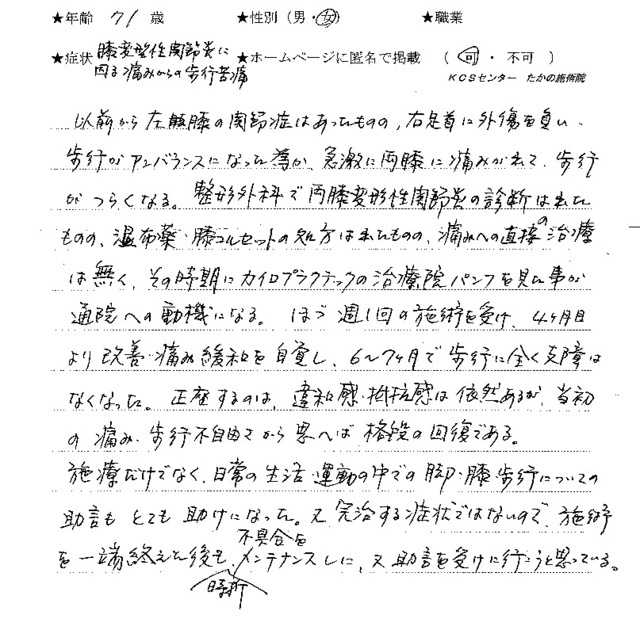 ★年齢 71 歳 ★性別（男・女） ★職業
★症状 膝変型性関節炎に因る痛みからの歩行苦痛 ★ホームページに匿名で掲載 （ 可 ・ 不可 ）
KCSセンター たかの施術院
以前から左膝の関節症はあったものの、右足首に外傷を負い、
歩行がアンバランスになった為か、急激に両膝に痛みが出て、歩行
がつらくなる。整形外科で両膝変形性関節炎の診断は出た
ものの、湿布薬・膝コルセットの処方は出たものの、痛みへの直接の治療
は無く、その時期にカイロプラクティックの治療院パンフを見た事が
通院への動機になる。ほゞ週1回の施術を受け、4ヶ月目
より改善・痛み緩和を自覚し、6〜7ヶ月で歩行に全く支障は
なくなった。正座するのは、違和感・抵抗感は依然あるが、当初
の痛み・歩行不自由さから思へば格段の回復である。
施療だけでなく、日常の生活 運動の中での脚・膝歩行についての
助言も とても助けになった。又完治する症状ではないので、施術
を一端終えた後も、時折不具合をメンテナンスしに、又助言を受けに行こうと思っている。